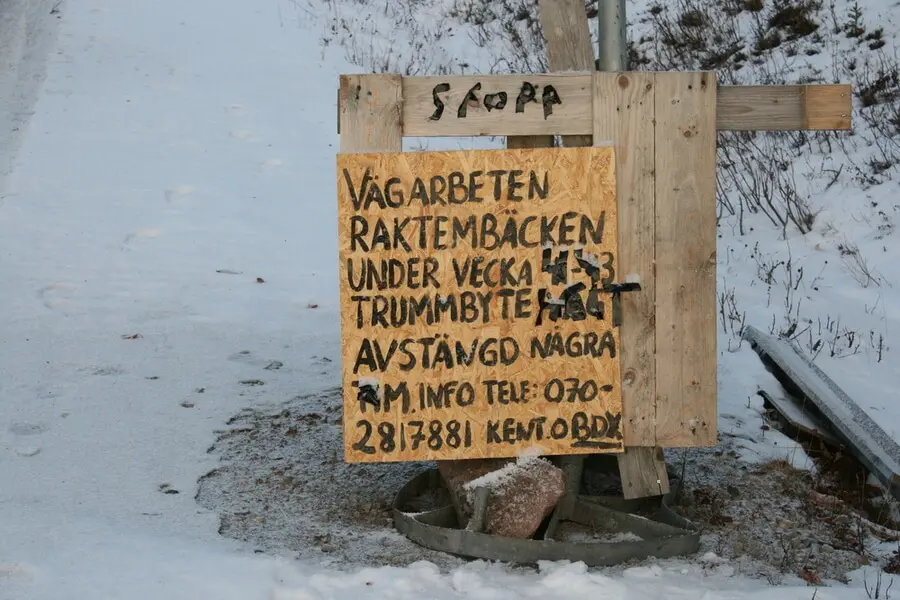 STOPP
VÄGARBETEN
RAKTEMBÄCKEN
UNDER VECKA
TRUMMBYTE
AVSTÄNGD NÅGRA
KM. INFO TELE: 070-
2817881 KENT.O BDX